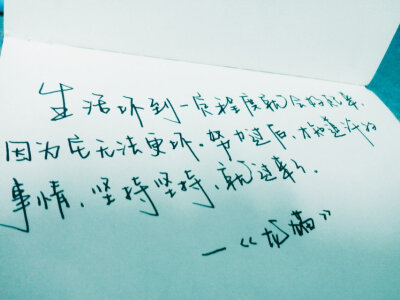 生活坏到一定程度就会好起来，
因为它无法更坏。努力过后，才知道许多
事情，坚持坚持，就过来了。
—《龙猫》